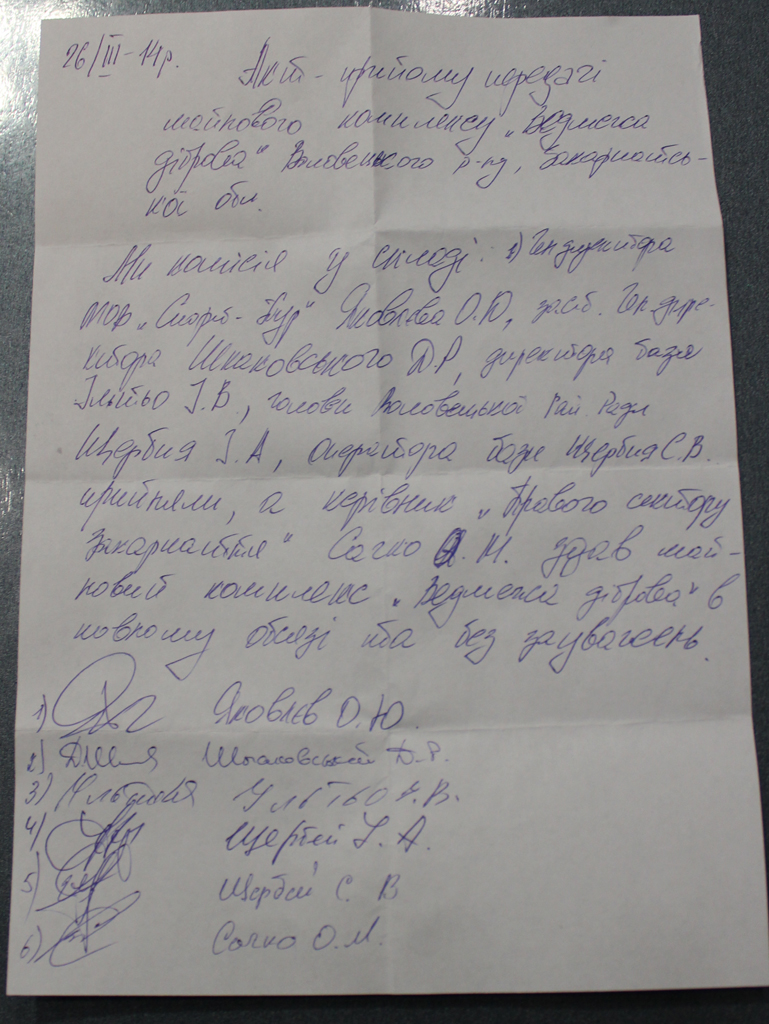 26/III-14р.
Акт - прийому передачі
майнового комплексу „Ведмежа
діброва" Воловецького р-ну, Закарпатсь-
кої обл.
Ми комісія у складі: 1) Ген директора
тов „Скорт-Буд" Яковлєва О.Ю, заст. Ген. дире-
ктора Шпаковського Д.Р, директора бази
Ільтьо І.В, голови Воловецької Рай Ради
Щербия І.А, оператора бази Щербия С.В.
прийняли, а керівник „Правого сектору
Закарпаття" Сачко О.М. здав май-
новий комплекс „Ведмежа діброва" в
повному обсязі та без зауважень.
1) Яковлєв О.Ю.
2) Шпаковський Д.Р.
3) Ультьо І.В.
4) Щербій І.А.
5) Щербій С.В
6) Сачко О.М.